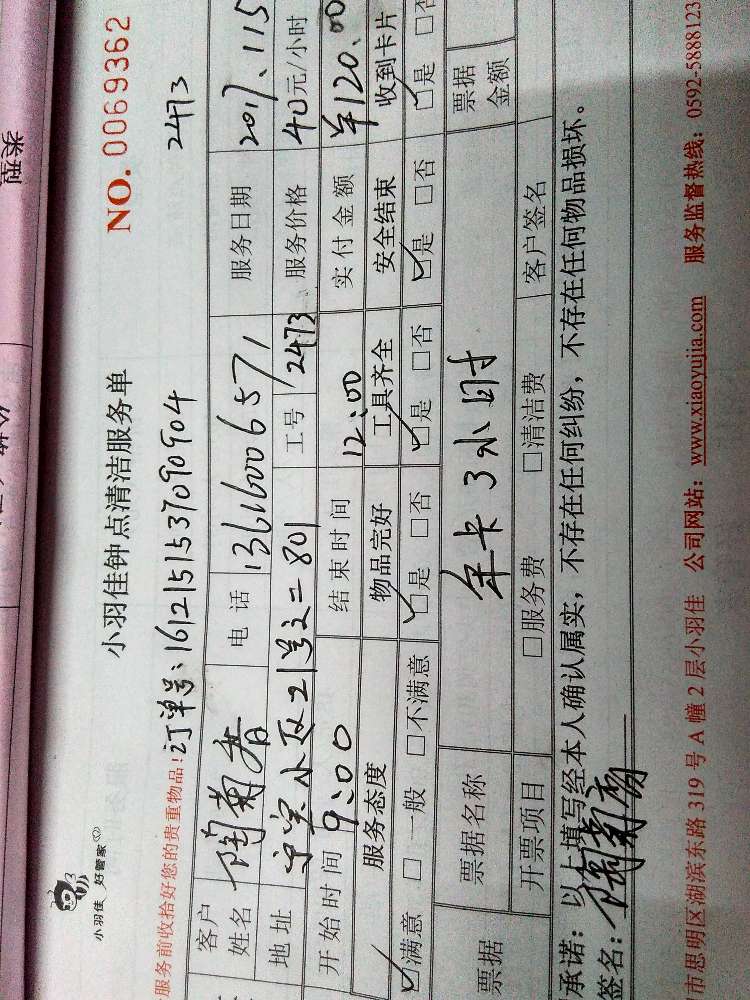 类型
小羽佳 好管家
小羽佳钟点清洁服务单
NO. 0069362
服务前收拾好您的贵重物品! 订单号:1612151537090904 2473
客户姓名 陶菊香 电话 13616006571 服务日期 2017.115
地址 小区21号之二801 工号 2473 服务价格 40元/小时
开始时间 9:00 结束时间 12:00 实付金额 ¥120.00
服务态度 物品完好 工具齐全 安全结束 收到卡片
☑满意 □一般 □不满意 ☑是 □否 ☑是 □否 ☑是 □否 ☑是 □否
票据 票据名称 年卡3小时 票据金额
开票项目 □服务费 □清洁费 客户签名
承诺:以上填写经本人确认属实,不存在任何纠纷,不存在任何物品损坏。
签名:陶菊香
市思明区湖滨东路 319 号 A 幢 2 层小羽佳 公司网站:www.xiaoyujia.com 服务监督热线:0592-5888123